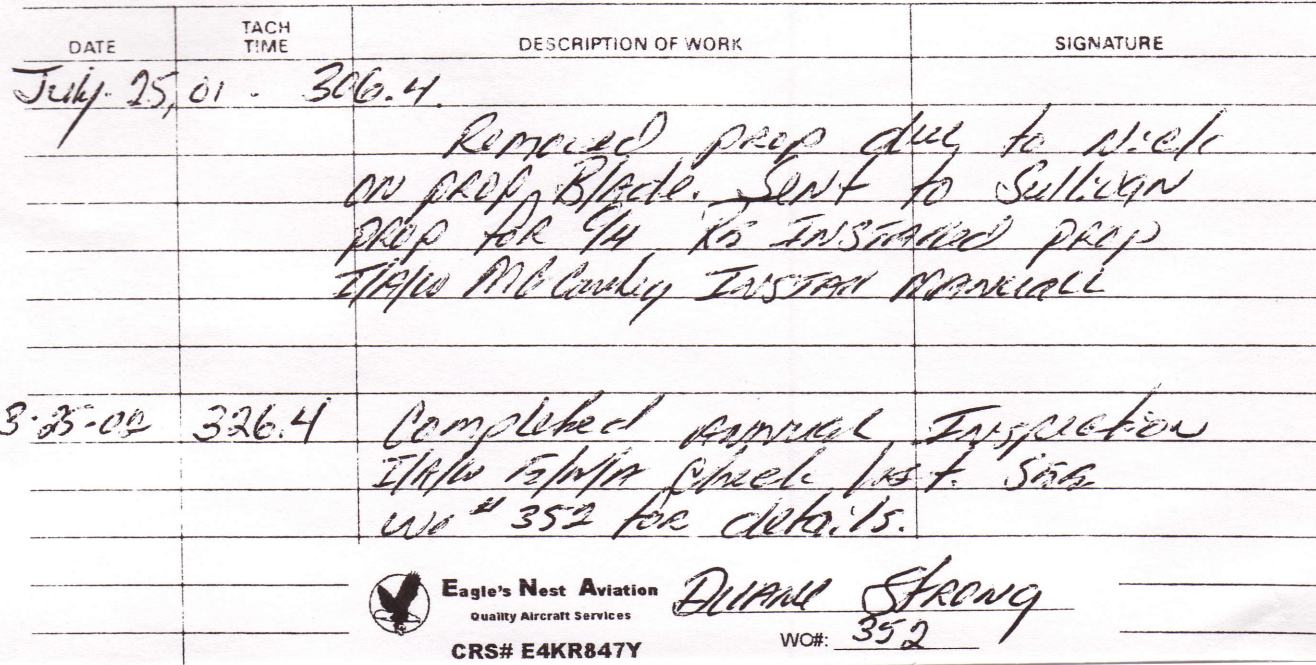 DATE TACH TIME DESCRIPTION OF WORK SIGNATURE
July 25, 01 - 306.4
Removed prop due to Nick
on prop Blade. Sent to Sullivan
prop for O/H Re INSTALLED prop
I/A/W McCauley INSTAll MANUALL
3-25-02 326.4 Completed Annual Inspection
I/A/W E/N/A Check list. See
wo # 352 for details.
Eagle's Nest Aviation
Quality Aircraft Services
CRS# E4KR847Y
Duane Strong
WO#: 352